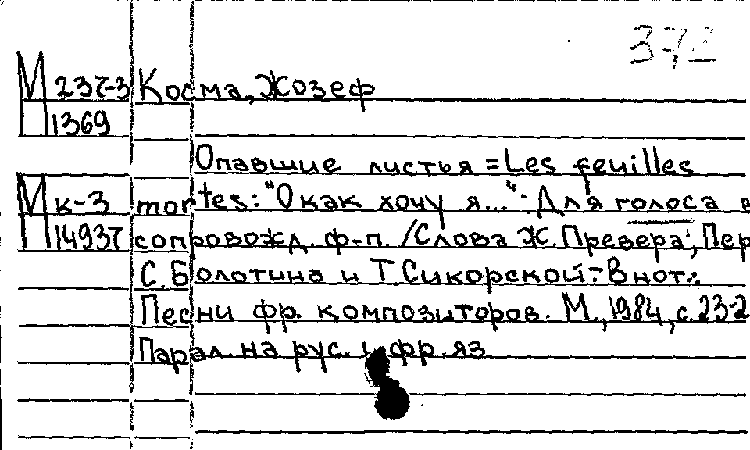 372
М 237-3 Косма, Жозеф
П 1369
Опавшие листья = Les feuilles
М к-3 mortes: "О как хочу я...": Для голоса в
П 14937 сопровожд. ф-п. /Слова Ж. Превера; Пер.
С. Болотина и Т. Сикорской.- В нот.:
Песни фр. композиторов. М., 1984, с. 23-2
Парал. на рус. и фр. яз